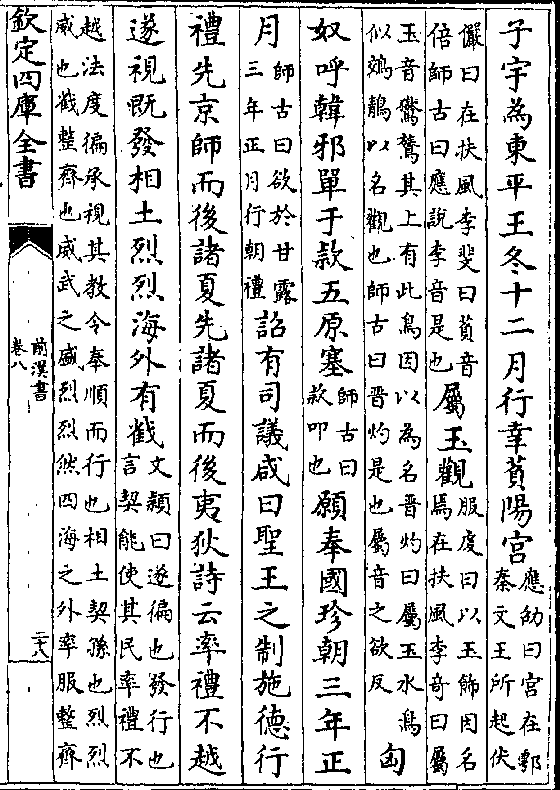 子宇為東平王冬十二月行幸萯陽宮應劭曰宮在鄠
秦文王所起伏
儼曰在扶風李斐曰萯音
倍師古曰應說李音是也屬玉觀服虔曰以玉飾因名
焉在扶風李竒曰屬
玉音鸑鷟其上有此鳥因以為名晋灼曰屬玉水鳥
似鵁鶄以名觀也師古曰晋灼是也屬音之欲反匈
奴呼韓邪單于款五原塞師古曰
款叩也願奉國珍朝三年正
月師古曰欲於甘露
三年正月行朝禮詔有司議咸曰聖王之制施德行
禮先京師而後諸夏先諸夏而後夷狄詩云率禮不越
遂視旣發相土烈烈海外有截文頴曰遂徧也發行也
言契能使其民率禮不
越法度徧承視其教令奉順而行也相土契孫也烈烈
威也截整齊也威武之盛烈烈然四海之外率服整齊
欽定四庫全書
前漢書
卷八
二十八